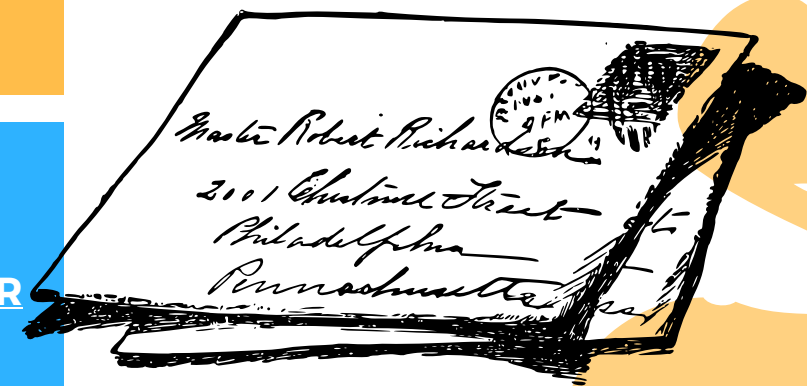 Master Robert Richardson
2001 Chestnut Street
Philadelphia
Pennachusetta
R